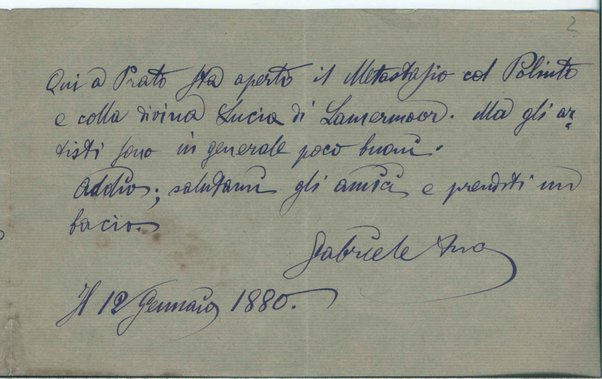 2
Qui a Prato sta aperto il Metastasio col Poliuto
e colla divina Lucia di Lamermoor. Ma gli ar-
tisti sono in generale poco buoni.
Addio; salutami gli amici e prenditi un
bacio.
Gabriele tuo
Il 12 Gennaio 1880.